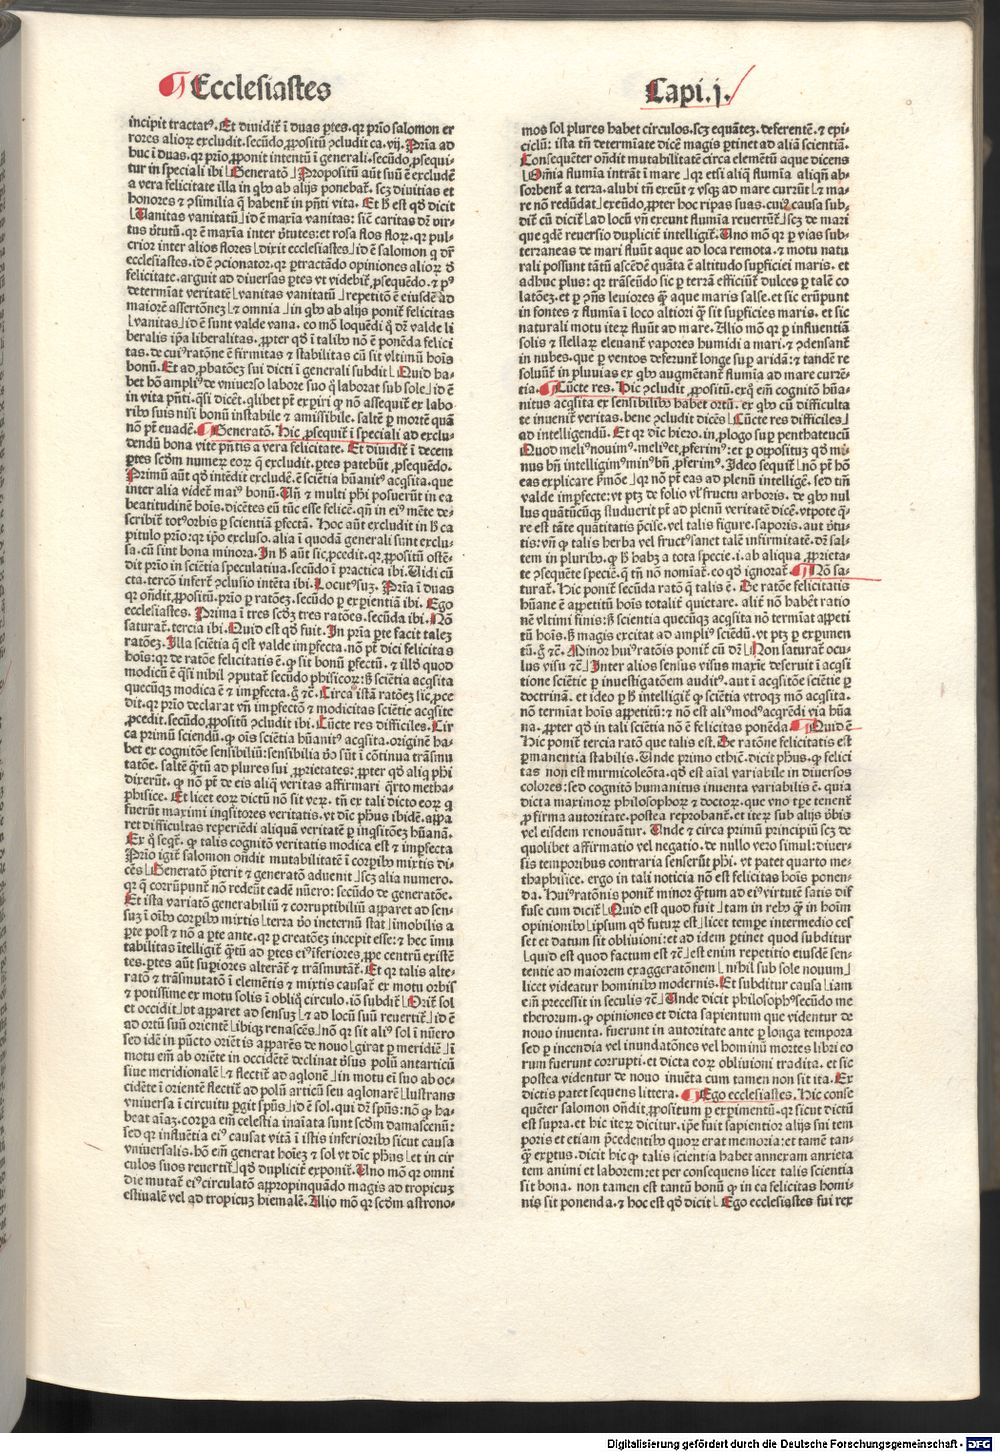 Ecclesiastes
Capi.j.
incipit tractatꝰ. Et diuidit̃ ĩ duas ꝑtes. qꝛ pꝛĩo salomon er
roꝛes alioꝝ excludit. secũdo ꝓpositũ ꝯcludit ca. vij. Pꝛĩa ad
huc ĩ duas. qꝛ pꝛĩo ꝓponit intentũ ĩ generali. secũdo ꝓsequi-
tur in speciali ibi ⌊Generatõ⌋ Pꝛopositũ aũt suũ ẽ excludẽ
a vera felicitate illa in qͥbꝰ ab alijs ponebat̃. scꝫ diuitias et
honoꝛes ⁊ ꝯsimilia q̃ habent̃ in pñti vita. Et hͦ est qd̃ dicit
⌊Uanitas vanitatũ⌋ id ẽ maxĩa vanitas: siĉ caritas dr̃ vir-
tus v̾tutũ. qꝛ ẽ maxĩa inter v̾tutes: et rosa flos floꝝ. qꝛ pul-
crioꝛ inter alios floꝛes ⌊dixit ecclesiastes⌋ id ẽ salomon q̃ dr̃
ecclesiastes. id ẽ ꝯcionatoꝛ. qꝛ ꝑtractãdo opiniones alioꝝ d̾
felicitate. arguit ad diuersas ꝑtes vt videbit̃ ꝓsequẽdo. ⁊ pꝰ
determĩat veritatẽ ⌊vanitas vanitatũ⌋ repetitõ ẽ eiusdẽ ad
maioꝛẽ assertõnez ⌊⁊ omnia⌋ in qͥbꝰ ab alijs ponit̃ felicitas
⌊vanitas⌋ id ẽ sunt valde vana. eo mõ loquẽdi q̃ dr̃ valde li
beralis ip̃a liberalitas. ꝓpter qd̃ ĩ talibꝰ nõ ẽ ponẽda felici
tas. de cuiꝰ ratõne ẽ firmitas ⁊ stabilitas cũ sit vltimũ hoĩs
bonũ. Et ad ꝓbatõez sui dicti ĩ generali subdit ⌊Quid ha-
bet hõ ampliꝰ de vniuerso laboꝛe suo q̃ laboꝛat sub sole⌋ id ẽ
in vita pñti. qͣsi dicẽt. qͥlibet pt̃ expiri qꝛ nõ asseqͥt̃ ex labo
ribꝰ suis nisi bonũ instabile ⁊ amissibile. saltẽ ꝑ moꝛtẽ quã
nõ pt̃ euadẽ. ¶ ⌊Generatõ. Hic ꝓsequit̃ ĩ speciali ad exclu-
dendũ bona vite pñtis a vera felicitate. Et diuidit̃ ĩ decem
ꝑtes scd̃m numeꝝ eoꝝ q̃ excludit. ꝑtes patebũt ꝓsequẽdo.
Pꝛimũ aũt qd̃ intẽdit excludẽ. ẽ sciẽtia hũanitꝰ acqͥsita. que
inter alia videt̃ maiꝰ bonũ. Uñ ⁊ multi phĩ posuerũt in ea
beatitudinẽ hoĩs. dicẽtes eũ tũc esse felicẽ. qñ in eiꝰ mẽte de-
scribit̃ totꝰ oꝛbis ꝑ scientiã ꝑfectã. Hoc aũt excludit in hͦ ca
pitulo pꝛĩo: qꝛ ipͦo excluso. alia ĩ quodã generali sunt exclu-
sa. cũ sint bona minoꝛa. In hͦ aũt sic ꝓcedit. qꝛ ꝓpositũ ostẽ-
dit pꝛĩo in sciẽtia speculatiua. secũdo ĩ pꝛactica ibi. Uidi cũ
cta. tercõ infert̃ ꝯclusio intẽta ibi. Locutꝰ suꝫ. Pꝛĩa ĩ duas
qꝛ oñdit ꝓpositũ. pꝛĩo ꝑ ratõez. secũdo ꝑ expientiã ibi. Ego
ecclesiastes. Pꝛima ĩ tres scd̃ꝫ tres ratões. secũda ibi. Nõ
saturat̃. tercia ibi. Quid est qd̃ fuit. In pꝛĩa ꝑte facit talez
ratõez. Illa sciẽtia q̃ est valde imꝑfecta. nõ pt̃ dici felicitas
hoĩs: qꝛ de ratõe felicitatis ẽ. ꝙ sit bonũ ꝑfectũ. ⁊ illd̃ quod
modicũ ẽ qͣsi nihil ꝯputat̃ secũdo phisicoꝝ: hͦ sciẽtia acqͥsita
quecũqꝫ modica ẽ ⁊ imꝑfecta. g̃ ⁊c̃. Circa istã ratõez sic ꝓce
dit. qꝛ pꝛĩo declarat vñ imꝑfectõ ⁊ modicitas sciẽtie acqͥsite
ꝓcedit. secũdo. ꝓpositũ ꝯcludit ibi. Cũcte res difficiles. Cir
ca pꝛimũ sciendũ. ꝙ oĩs sciẽtia hũanitꝰ acqͥsita. oꝛiginẽ ha-
bet ex cognitõe sensibiliũ: sensibilia v̾o sũt ĩ cõtinua trãsmu
tatõe. saltẽ qͣtũ ad plures sui ꝓpꝛietates: ꝓpter qd̃ aliqͥ phĩ
dixerũt. ꝙ nõ pt̃ de eis aliq̃ veritas affirmari qͣrto metha-
phisice. Et licet eoꝝ dictũ nõ sit verꝫ. tñ ex tali dicto eoꝝ q̃
fuerũt maximi inqͥsitoꝛes veritatis. vt dic̃ phꝰs ibidẽ. appa
ret difficultas reperiẽdi aliquã veritatẽ ꝑ inqͥsitõez hũanã.
Ex q̃ seqͥt̃. ꝙ talis cognitõ veritatis modica est ⁊ imꝑfecta
Pꝛĩo igit̃ salomon oñdit mutabilitatẽ ĩ coꝛꝑibꝰ mixtis di-
cẽs ⌊Generatõ pꝛ̃terit ⁊ generatõ aduenit⌋ scꝫ alia numero.
qꝛ q̃ coꝛrũpunt̃ nõ redeũt eadẽ nũero: secũdo de generatõe.
Et ista variatõ generabiliũ ⁊ coꝛruptibiliũ apparet ad sen-
suꝫ ĩ oĩbꝰ coꝛꝑibꝰ mixtis ⌊terra v̾o ineternũ stat⌋ ĩmobilis a
ꝑte post ⁊ nõ a ꝑte ante. qꝛ ꝑ creatõez incepit esse: ⁊ hec ĩmu
tabilitas ĩtelligit̃ qͣtũ ad ꝑtes eiꝰ ĩferioꝛes ꝓpe centrũ existẽ
tes. ꝑtes aũt supioꝛes alterãt̃ ⁊ trãsmutãt̃. Et qꝛ talis alte-
ratõ ⁊ trãsmutatõ ĩ elemẽtis ⁊ mixtis causat̃ ex motu oꝛbis
⁊ potissime ex motu solis ĩ obliqͦ circulo. iõ subdit̃ ⌊Oꝛit̃ sol
et occidit⌋ vt apparet ad sensuꝫ ⌊⁊ ad locũ suũ reuertit̃⌋ id ẽ
ad oꝛtũ suũ oꝛientẽ ⌊ibiqꝫ renascẽs⌋ nõ qꝛ sit aliꝰ sol ĩ nũero
sed idẽ in pũcto oꝛiẽtis apparẽs de nouo ⌊girat ꝑ meridiẽ⌋ ĩ
motu em̃ ab oꝛiẽte in occidẽtẽ declinat v̾sus polũ antarticũ
siue meridionalẽ ⌊⁊ flectit̃ ad aqͥlonẽ⌋ in motu eĩ suo ab oc-
cidẽte ĩ oꝛientẽ flectit̃ ad polũ articũ seu aqͥlonarẽ ⌊lustrans
vniuersa ĩ circuitu ꝑgit spũs⌋ id ẽ sol. qui dr̃ spũs: nõ ꝙ ha-
beat aĩaꝫ. coꝛꝑa em̃ celestia inaĩata sunt scd̃m damascenũ:
sed qꝛ influẽtia eiꝰ causat vitã ĩ istis inferioꝛibꝰ sicut causa
vniuersalis. hõ em̃ generat hoĩez ⁊ sol vt dic̃ phꝰs ⌊et in cir
culos suos reuertit̃⌋ qd̃ duplicit̃ exponit̃. Uno mõ qꝛ omni
die mutat̃ eiꝰ circulatõ appꝛopinquãdo magis ad tropicuꝫ
estiualẽ vel ad tropicuꝫ hiemalẽ. Alio mõ qꝛ scd̃m astrono-
mos sol plures habet circulos. scꝫ equãteꝫ. deferentẽ. ⁊ epi-
ciclũ: ista tñ determĩate dicẽ magis ꝑtinet ad aliã scientiã.
Consequẽter oñdit mutabilitatẽ circa elementũ aque dicens
⌊Om̃ia flumĩa intrãt ĩ mare⌋ qꝛ etsi aliq̃ flumĩa aliqñ ab-
soꝛbent̃ a terra. alubi tñ exeũt ⁊ vsqꝫ ad mare currũt ⌊⁊ ma-
re nõ redũdat⌋ exeũdo ꝓpter hoc ripas suas. cuiꝰ causa sub-
dit̃ cũ dicit̃ ⌊ad locũ vñ exeunt flumĩa reuertũt̃⌋ scꝫ de mari
que qͥdẽ reuersio duplicit̃ intelligit̃. Uno mõ qꝛ ꝑ vias sub-
terraneas de mari fluũt aque ad loca remota. ⁊ motu natu
rali possunt tãtũ ascẽdẽ quãta ẽ altitudo suꝑficiei maris. et
adhuc plus: qꝛ trãseũdo sic ꝑ terrã efficiũt̃ dulces ꝑ talẽ co
latõez. et ꝑ ꝯñs leuioꝛes q̃ꝫ aque maris salse. et sic erũpunt
in fontes ⁊ flumĩa ĩ loco altioꝛi q̃ꝫ sit suꝑficies maris. et sic
naturali motu iteꝝ fluũt ad mare. Alio mõ qꝛ ꝑ influentiã
solis ⁊ stellaꝝ eleuant̃ vapoꝛes humidi a mari. ⁊ ꝯdensant̃
in nubes. que ꝑ ventos deferunt̃ longe suꝑ aridã: ⁊ tandẽ re
soluũt̃ in pluuias ex qͥbꝰ augmẽtant̃ flumĩa ad mare currẽ-
tia. ¶ ⌊Cũcte res. Hic ꝯcludit ꝓpositũ. exq̃ em̃ cognitõ hũa-
nitus acqͥsita ex sensibilibꝰ habet oꝛtũ. ex qͥbꝰ cũ difficulta
te inuenit̃ veritas. bene ꝯcludit dicẽs ⌊Cũcte res difficiles⌋
ad intelligendũ. Et qꝛ dic̃ hiero. in ꝓlogo suꝑ penthateucũ
Quod meliꝰ nouimꝰ. meliꝰ et ꝓferimꝰ: et ꝑ oppositũ qd̃ mi-
nus bñ intelligimꝰ minꝰ bñ ꝓferimꝰ. Ideo sequit̃ ⌊nõ pt̃ hõ
eas explicare ẜmõe⌋ qꝛ nõ pt̃ eas ad plenũ intelligẽ. sed tm̃
valde imꝑfecte: vt ptꝫ de folio vl̾ fructu arboꝛis. de qͥbꝰ nul
lus quãtũcũqꝫ studuerit pt̃ ad plenũ veritatẽ dicẽ. vtpote q̃
re est tãte quãtitatis pꝛ̃cise. vel talis figure. sapoꝛis. aut v̾tu-
tis: vñ ꝙ talis herba vel fructꝰ sanet talẽ infirmitatẽ. dr̃ sal-
tem in pluribꝰ. ꝙ hͦ habꝫ a tota specie. i. ab aliqua ꝓpꝛieta-
te ꝯsequẽte speciẽ. q̃ tñ nõ nomĩat̃. eo qd̃ ignoꝛat̃. ¶ ⌊Nõ sa-
turat̃. Hic ponit̃ secũda ratõ q̃ talis ẽ. De ratõe felicitatis
hũane ẽ appetitũ hoĩs totalit̃ quietare. alit̃ nõ habet̃ ratio
nẽ vltimi finis: hͦ scientia quecũqꝫ acqͥsita nõ termĩat appeti
tũ hoĩs. hͦ magis excitat ad ampliꝰ sciẽdũ. vt ptꝫ ꝑ expimen
tũ. g̃ ⁊c̃. Minoꝛ huiꝰ ratõis ponit̃ cũ dr̃ ⌊Non saturat̃ ocu-
lus visu ⁊c̃⌋ Inter alios sensus visus maxĩe deseruit ĩ acqͥsi
tione sciẽtie ꝑ inuestigatõem auditꝰ. aut ĩ acqͥsitõe sciẽtie ꝑ
doctrinã. et ideo ꝑ hͦ intelligit̃ ꝙ sciẽtia vtroqꝫ mõ acqͥsita.
nõ termĩat hoĩs appetitũ: ⁊ nõ est aliꝰ modꝰ acqͥrẽdi via hũa
na. ꝓpter qd̃ in tali sciẽtia nõ ẽ felicitas ponẽda. ¶ ⌊Quid ẽ
Hic ponit̃ tercia ratõ que talis est. De ratõne felicitatis est
ꝑmanentia stabilis. Unde pꝛimo ethic̃. dicit phꝰs. ꝙ felici
tas non est mirmicoleõta. qd̃ est aĩal variabile in diuersos
coloꝛes: sed cognitõ humanitus inuenta variabilis ẽ. quia
dicta maximoꝝ philosophoꝝ ⁊ doctoꝝ. que vno tꝑe tenent̃
ꝓ firma autoꝛitate. postea repꝛobant̃. et iteꝝ sub alijs v̾bis
vel eisdem renouãtur. Unde ⁊ circa pꝛimũ pꝛincipiũ scꝫ de
quolibet affirmatio vel negatio. de nullo vero simul: diuer-
sis tempoꝛibus contraria senserũt phĩ. vt patet quarto me-
thaphisice. ergo in tali noticia nõ est felicitas hoĩs ponen-
da. Huiꝰ ratõnis ponit̃ minoꝛ qͣtum ad eiꝰ virtutẽ satis dif
fuse cum dicit̃ ⌊Quid est quod fuit⌋ tam in rebꝰ q̃ꝫ in hoĩm
opinionibꝰ ⌊ipsum qd̃ futuꝝ est⌋ licet tempe intermedio ces
set et datum sit obliuioni: et ad idem ꝑtinet quod subditur
⌊quid est quod factum est ⁊c̃⌋ est enim repetitio eiusdẽ sen-
tentie ad maioꝛem exaggeratõnem ⌊nihil sub sole nouum⌋
licet videatur hominibꝰ modernis. Et subditur causa ⌊iam
em̃ pꝛecessit in seculis ⁊c̃⌋ Unde dicit philosophꝰ secũdo me
theroꝛum. ꝙ opiniones et dicta sapientum que videntur de
nouo inuenta. fuerunt in autoꝛitate ante ꝑ longa tempoꝛa
sed ꝑ incendia vel inundatõnes vel hominũ moꝛtes libꝛi eo
rum fuerunt coꝛrupti. et dicta eoꝝ obliuioni tradita. et sic
postea videntur de nouo inuẽta cum tamen non sit ita. Ex
dictis patet sequens littera. ¶ ⌊Ego ecclesiastes. Hic conse
quẽter salomon oñdit ꝓpositum ꝑ exꝑimentũ. qꝛ sicut dictũ
est supꝛa. et hic iteꝝ dicitur. ip̃e fuit sapientioꝛ alijs sui tem
poꝛis et etiam pꝛ̃cedentibꝰ quoꝝ erat memoꝛia: et tamẽ tan-
q̃ꝫ exꝑtus. dicit hic ꝙ talis scientia habet annexam anxieta
tem animi et laboꝛem: et per consequens licet talis scientia
sit bona. non tamen est tantũ bonũ ꝙ in ea felicitas homi-
nis sit ponenda. ⁊ hoc est qd̃ dicit ⌊Ego ecclesiastes fui rex
Digitalisierung gefördert durch die Deutsche Forschungsgemeinschaft - DFG